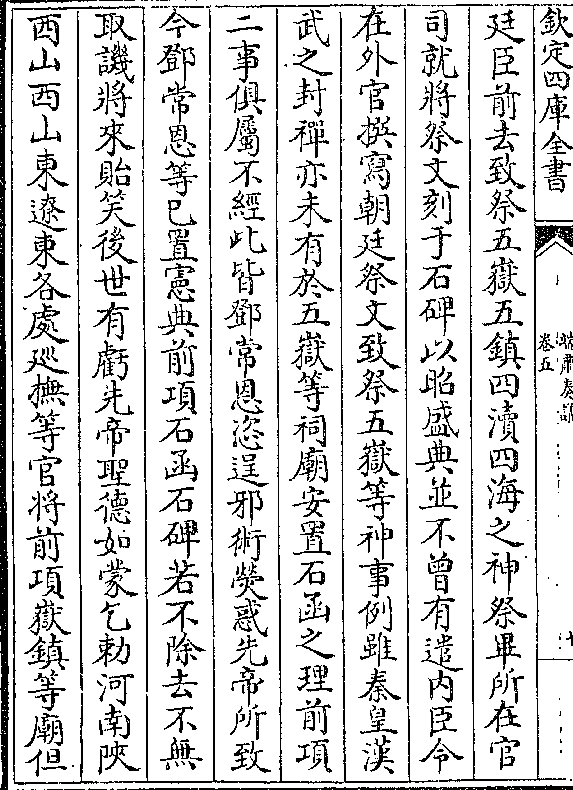 欽定四庫全書
卷五
廷臣前去致祭五嶽五鎮四瀆四海之神祭畢所在官
司就將祭文刻于石碑以昭盛典並不曾有遣内臣令
在外官撰寫朝廷祭文致祭五嶽等神事例雖秦皇漢
武之封禪亦未有於五嶽等祠廟安置石函之理前項
二事俱屬不經此皆鄧常恩恣逞邪術熒惑先帝所致
今鄧常恩等已置憲典前項石函石碑若不除去不無
取譏將來貽笑後世有虧先帝聖德如蒙乞勅河南陜
西山西山東遼東各處廵撫等官將前項嶽鎮等廟但